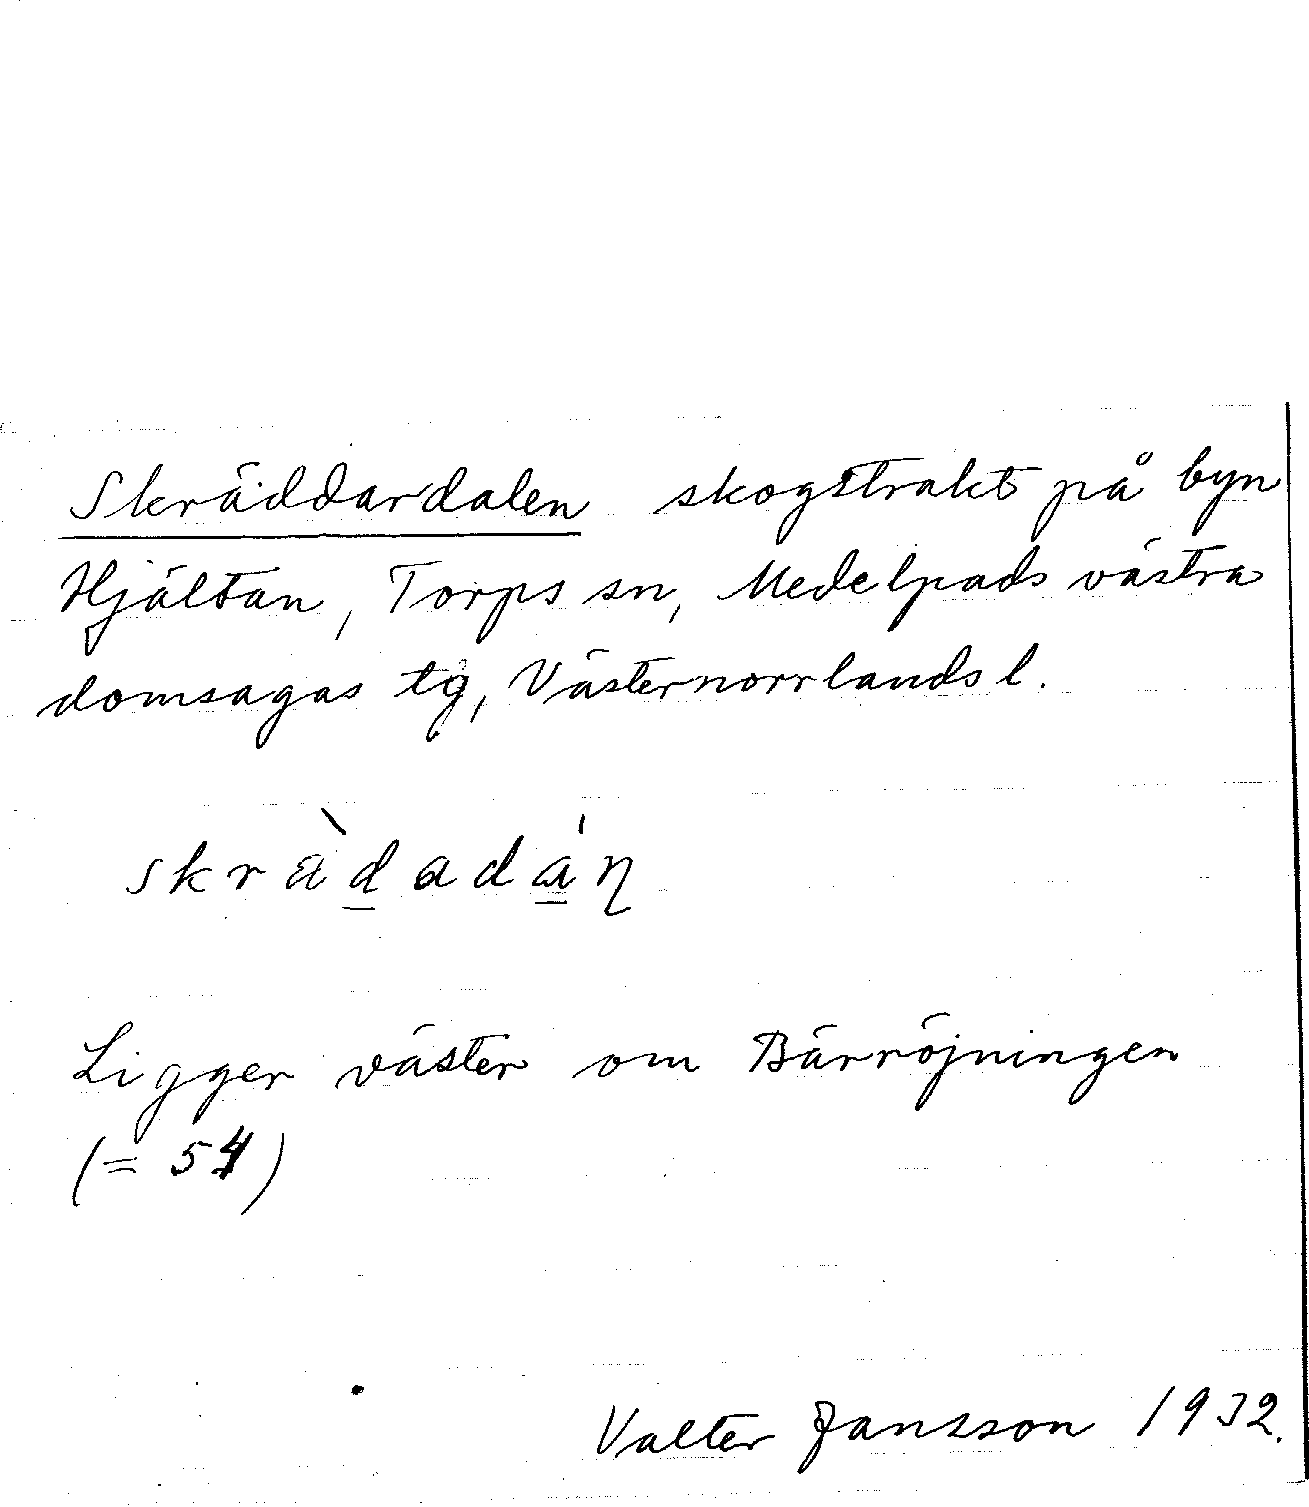 Skräddardalen skogstrakt på byn
Hjältan, Torps sn, Medelpads västra
domsagas tg, Västernorrlands l.
skrä̀dadáη
Ligger väster om Bärröjningen
(= 54)
Valter Jansson 1932.